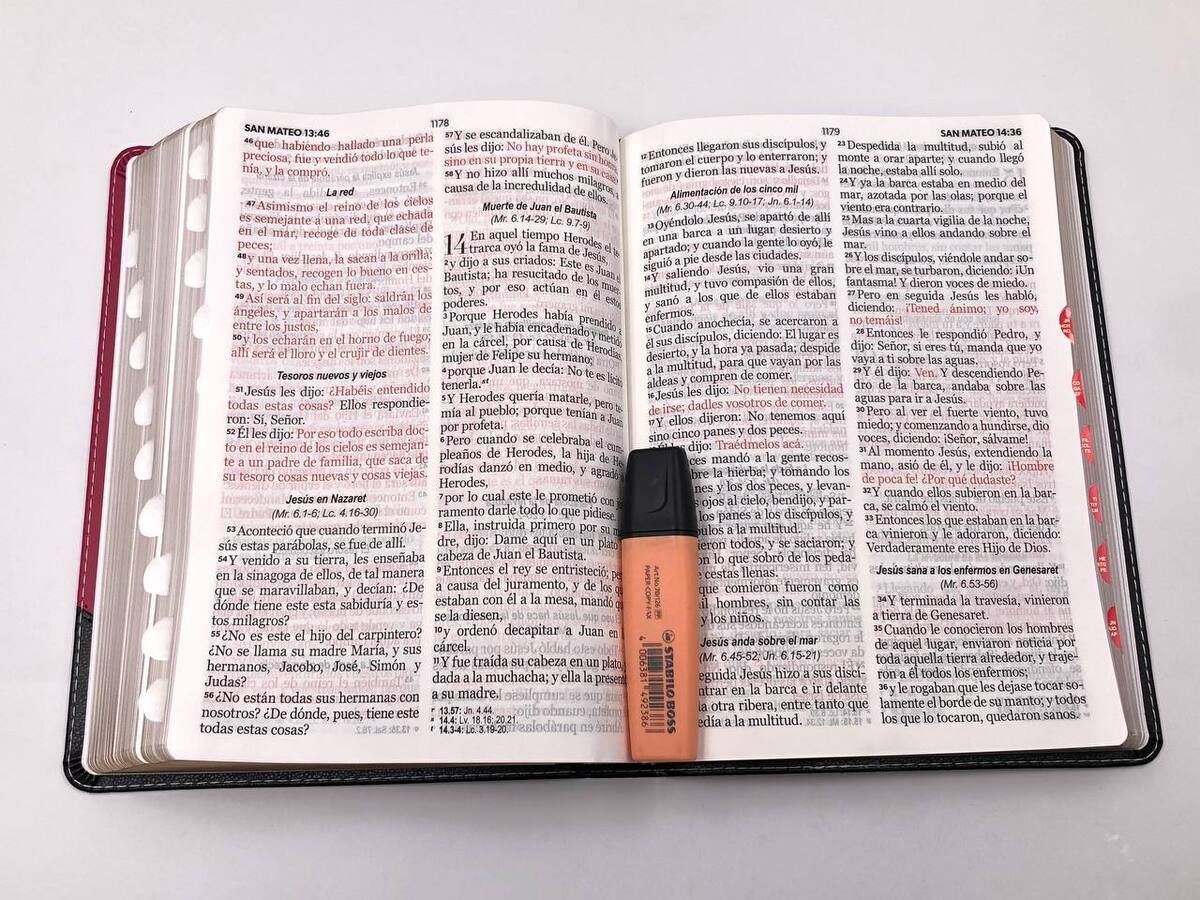 SAN MATEO 13:46
1178
46 que habiendo hallado una perla
preciosa, fue y vendió todo lo que te-
nía, y la compró.
La red
47 Asimismo el reino de los cielos
es semejante a una red, que echada
en el mar, recoge de toda clase de
peces;
48 y una vez llena, la sacan a la orilla;
y sentados, recogen lo bueno en ces-
tas, y lo malo echan fuera.
49 Así será al fin del siglo: saldrán los
ángeles, y apartarán a los malos de
entre los justos,
50 y los echarán en el horno de fuego;
allí será el lloro y el crujir de dientes.
Tesoros nuevos y viejos
51 Jesús les dijo: ¿Habéis entendido
todas estas cosas? Ellos respondie-
ron: Sí, Señor.
52 Él les dijo: Por eso todo escriba doc-
to en el reino de los cielos es semejan-
te a un padre de familia, que saca de
su tesoro cosas nuevas y cosas viejas.
Jesús en Nazaret
(Mr. 6.1-6; Lc. 4.16-30)
53 Aconteció que cuando terminó Je-
sús estas parábolas, se fue de allí.
54 Y venido a su tierra, les enseñaba
en la sinagoga de ellos, de tal manera
que se maravillaban, y decían: ¿De
dónde tiene este esta sabiduría y es-
tos milagros?
55 ¿No es este el hijo del carpintero?
¿No se llama su madre María, y sus
hermanos, Jacobo, José, Simón y
Judas?
56 ¿No están todas sus hermanas con
nosotros? ¿De dónde, pues, tiene este
todas estas cosas?
57 Y se escandalizaban de él. Pero Je-
sús les dijo: No hay profeta sin
sino en su propia tierra y en su casa.
58 Y no hizo allí muchos milagros, a
causa de la incredulidad de ellos.
Muerte de Juan el Bautista
(Mr. 6.14-29; Lc. 9.7-9)
14 En aquel tiempo Herodes el te-
trarca oyó la fama de Jesús,
2 y dijo a sus criados: Este es Juan el
Bautista; ha resucitado de los muer-
tos, y por eso actúan en él estos
poderes.
3 Porque Herodes había prendido a
Juan, y le había encadenado y metido
en la cárcel, por causa de Herodías,
mujer de Felipe su hermano;
4 porque Juan le decía: No te es lícito
tenerla.
5 Y Herodes quería matarle, pero te-
mía al pueblo; porque tenían a Juan
por profeta.
6 Pero cuando se celebraba el cum-
pleaños de Herodes, la hija de He-
rodías danzó en medio, y agradó a
Herodes,
7 por lo cual este le prometió con ju-
ramento darle todo lo que pidiese.
8 Ella, instruida primero por su ma-
dre, dijo: Dame aquí en un plato la
cabeza de Juan el Bautista.
9 Entonces el rey se entristeció; pero
a causa del juramento, y de los que
estaban con él a la mesa, mandó que
se la diesen,
10 y ordenó decapitar a Juan en la
cárcel.
11 Y fue traída su cabeza en un plato,
dada a la muchacha; y ella la presentó
a su madre.
13.57: Jn. 4.44.
14.4: Lv. 18.16; 20.21.
14.3-4: Lc. 3.19-20.
1179
SAN MATEO 14:36
12 Entonces llegaron sus discípulos, y
tomaron el cuerpo y lo enterraron; y
fueron y dieron las nuevas a Jesús.
Alimentación de los cinco mil
(Mr. 6.30-44; Lc. 9.10-17; Jn. 6.1-14)
13 Oyéndolo Jesús, se apartó de allí
en una barca a un lugar desierto y
apartado; y cuando la gente lo oyó, le
siguió a pie desde las ciudades.
14 Y saliendo Jesús, vio una gran
multitud, y tuvo compasión de ellos,
y sanó a los que de ellos estaban
enfermos.
15 Cuando anochecía, se acercaron a
él sus discípulos, diciendo: El lugar es
desierto, y la hora ya pasada; despide
a la multitud, para que vayan por las
aldeas y compren de comer.
16 Jesús les dijo: No tienen necesidad
de irse; dadles vosotros de comer.
17 Y ellos dijeron: No tenemos aquí
sino cinco panes y dos peces.
les dijo: Traédmelos acá.
mandó a la gente recos-
la hierba; y tomando los
y los dos peces, y levan-
ojos al cielo, bendijo, y par-
los panes a los discípulos, y
a la multitud.
todos, y se saciaron; y
lo que sobró de los peda-
cestas llenas.
que comieron fueron como
hombres, sin contar las
y los niños.
Jesús anda sobre el mar
(Mr. 6.45-52, Jn. 6.15-21)
hizo a sus disci-
entrar en la barca e ir delante
otra ribera, entre tanto que
a la multitud.
23 Despedida la multitud, subió al
monte a orar aparte; y cuando llegó
la noche, estaba allí solo.
24 Y ya la barca estaba en medio del
mar, azotada por las olas; porque el
viento era contrario.
25 Mas a la cuarta vigilia de la noche,
Jesús vino a ellos andando sobre el
mar.
26 Y los discípulos, viéndole andar so-
bre el mar, se turbaron, diciendo: ¡Un
fantasma! Y dieron voces de miedo.
27 Pero en seguida Jesús les habló,
diciendo: ¡Tened ánimo; yo soy,
no temáis!
28 Entonces le respondió Pedro, y
dijo: Señor, si eres tú, manda que yo
vaya a ti sobre las aguas.
29 Y él dijo: Ven. Y descendiendo Pe-
dro de la barca, andaba sobre las
aguas para ir a Jesús.
30 Pero al ver el fuerte viento, tuvo
miedo; y comenzando a hundirse, dio
voces, diciendo: ¡Señor, sálvame!
31 Al momento Jesús, extendiendo la
mano, asió de él, y le dijo: ¡Hombre
de poca fe! ¿Por qué dudaste?
32 Y cuando ellos subieron en la bar-
ca, se calmó el viento.
33 Entonces los que estaban en la bar-
ca vinieron y le adoraron, diciendo:
Verdaderamente eres Hijo de Dios.
Jesús sana a los enfermos en Genesaret
(Mr. 6.53-56)
34 Y terminada la travesía, vinieron
a tierra de Genesaret.
35 Cuando le conocieron los hombres
de aquel lugar, enviaron noticia por
toda aquella tierra alrededor, y traje-
ron a él todos los enfermos;
36 y le rogaban que les dejase tocar so-
lamente el borde de su manto; y todos
los que lo tocaron, quedaron sanos.
STABILO BOSS
4 006381 492386